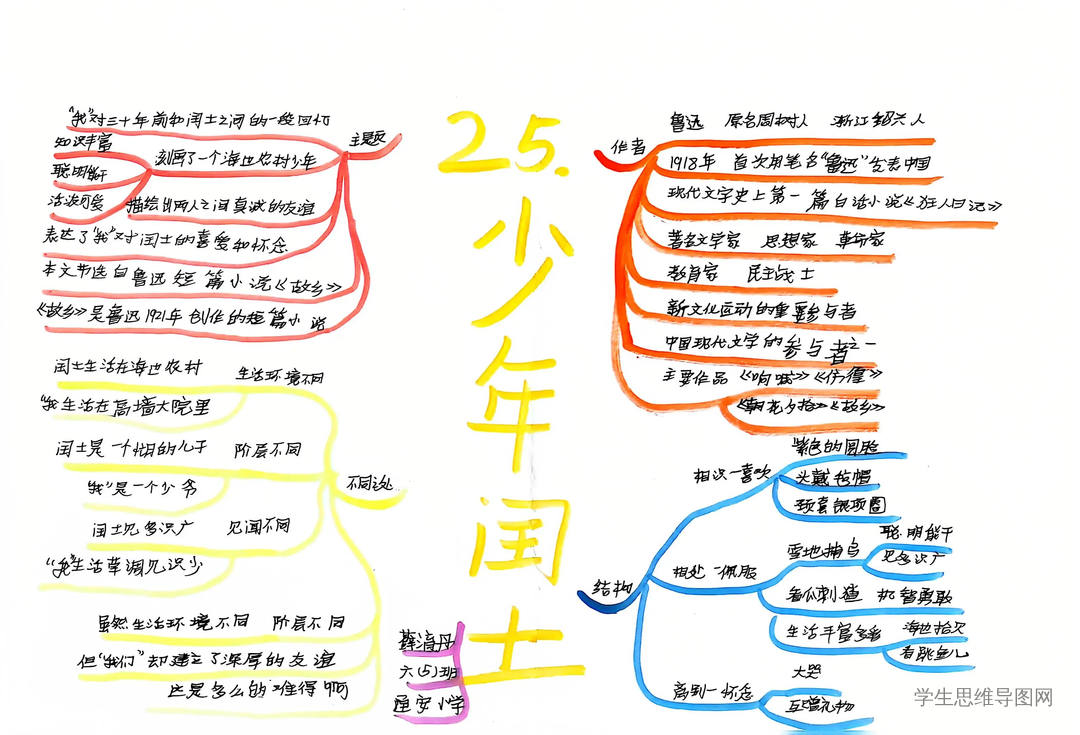 25.少年闰土
主题
"我"对三十年前和闰土之间的一段回忆
刻画了一个海边农村少年
知识丰富
聪明能干
活泼可爱
描绘出两人之间真诚的友谊
表达了"我"对闰土的喜爱和怀念
本文节选自鲁迅短篇小说《故乡》
《故乡》是鲁迅1921年创作的短篇小说
不同之处
闰土生活在海边农村 生活环境不同
"我"生活在高墙大院里
闰土是一个忙月的儿子 阶层不同
"我"是一个少爷
闰土见多识广 见闻不同
"我"生活单调见识少
虽然生活环境不同 阶层不同
但"我们"却建立了深厚的友谊
这是多么的难得啊
六(5)班
小学
作者
鲁迅 原名周树人 浙江绍兴人
1918年 首次用笔名"鲁迅"发表中国
现代文学史上第一篇白话小说《狂人日记》
著名文学家 思想家 革命家
教育家 民主战士
新文化运动的重要参与者
中国现代文学的参与者之一
主要作品《呐喊》《彷徨》
《朝花夕拾》《故乡》
结构
相识—喜欢
紫色的圆脸
头戴毡帽
颈套银项圈
相处—佩服
雪地捕鸟
聪明能干
见多识广
看瓜刺猹 机智勇敢
生活丰富多彩
海边拾贝
看跳鱼儿
离别—怀念
大哭
互赠礼物
学生思维导图网